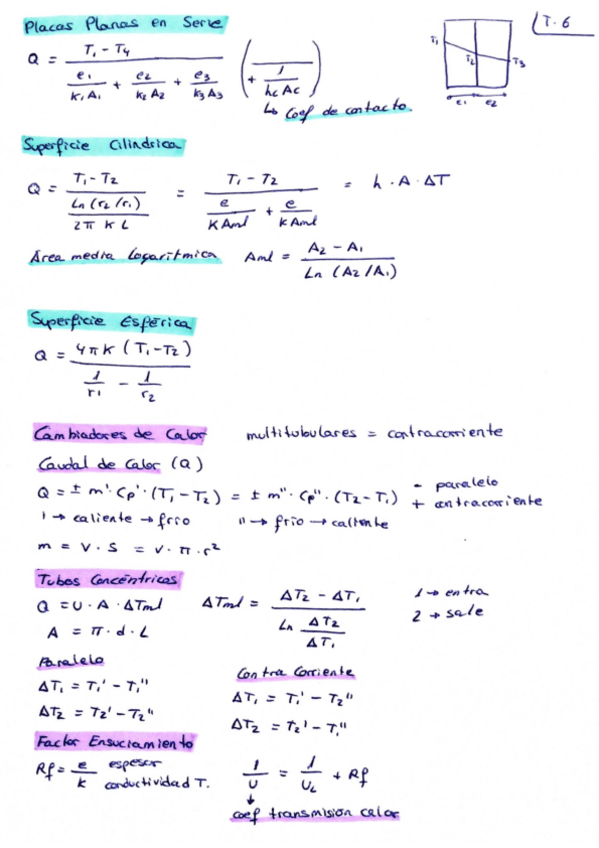 Placas Planas en Serie
T.6
Q = (T₁ - T₄) / (e₁/(K₁A₁) + e₂/(K₂A₂) + e₃/(K₃A₃) (+ 1/(hc Ac)))
↳ Coef de contacto.
T₁ T₂ T₃
e₁ e₂
Superficie Cilíndrica
Q = (T₁ - T₂) / ((Ln (r₂/r₁)) / (2π K L)) = (T₁ - T₂) / (e/(K Aml) + e/(K Aml)) = h · A · ΔT
Área media Logarítmica Aml = (A₂ - A₁) / (Ln (A₂/A₁))
Superficie Esférica
Q = (4πK (T₁-T₂)) / (1/r₁ - 1/r₂)
Cambiadores de Calor multitubulares = contracorriente
Caudal de Calor (Q)
Q = ± m' · Cp' · (T₁ - T₂) = ± m'' · Cp'' · (T₂ - T₁) - paralelo
+ contracorriente
' → caliente → frío '' → frío → caliente
m = v · S = v · π · r²
Tubos Concéntricos
Q = U · A · ΔTml ΔTml = (ΔT₂ - ΔT₁) / (Ln ΔT₂/ΔT₁) 1 → entra
A = π · d · L 2 → sale
Paralelo
ΔT₁ = T₁' - T₁''
ΔT₂ = T₂' - T₂''
Contra Corriente
ΔT₁ = T₁' - T₂''
ΔT₂ = T₂' - T₁''
Factor Ensuciamiento
Rf = e/k espesor
conductividad T.
1/U = 1/UL + Rf
↓
coef transmisión calor